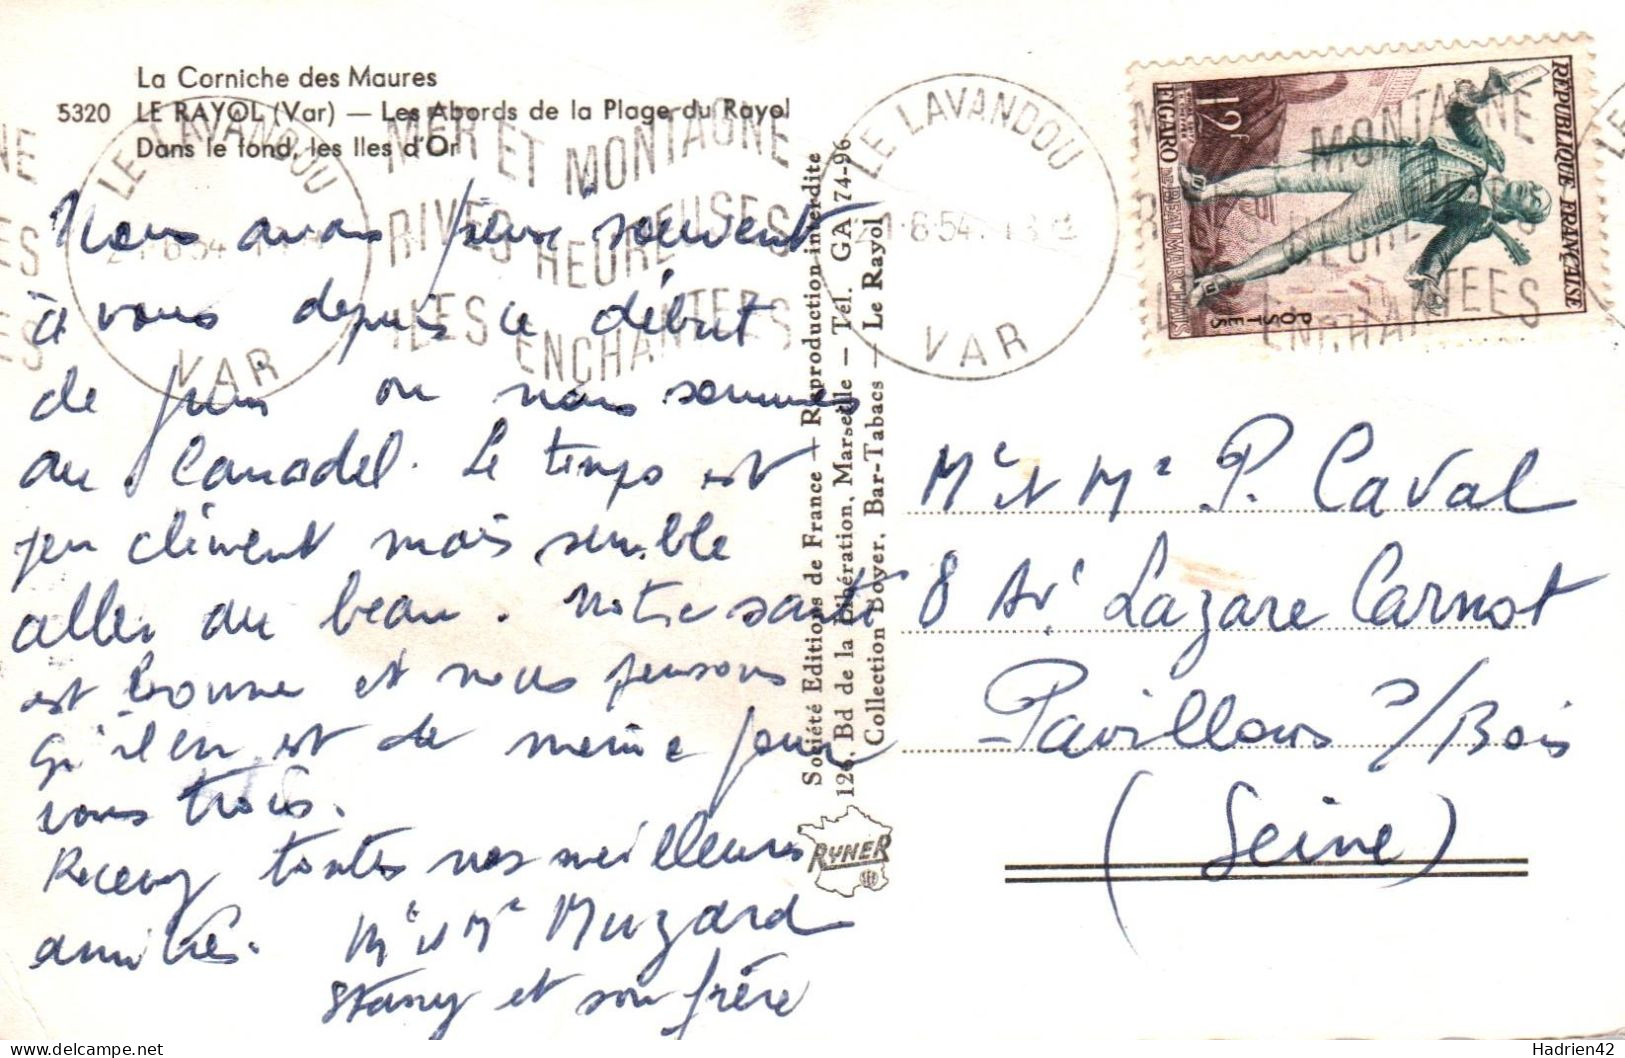 La Corniche des Maures
5320 LE RAYOL (Var) — Les Abords de la Plage du Rayol
Dans le fond, les Iles d'Or
LE LAVANDOU
VAR
MER ET MONTAGNE
RIVES HEUREUSES
ILES ENCHANTEES
LE LAVANDOU
21-6-54
VAR
REPUBLIQUE FRANÇAISE
12f
FIGARO DE BEAUMARCHAIS
POSTES
MONTAGNE
ENCHANTEES
Nous avons pensé souvent
à vous depuis ce début
de juin où nous sommes
au Canadel. Le temps est
peu clément mais semble
aller au beau. Notre santé
est bonne et nous pensons
qu'il en est de même pour
vous trois.
Recevez toutes nos meilleures
amitiés. Mr et Me Muzard
Stany et son frère
Société Editions de France — Reproduction interdite
126, Bd de la Libération, Marseille — Tél. GA. 74-96
Collection Boyer, Bar-Tabacs — Le Rayol
RYNER
Mr et Me P. Caval
8 Av. Lazare Carnot
Pavillons s/Bois
(Seine)
Delcampe.net
Hadrien42